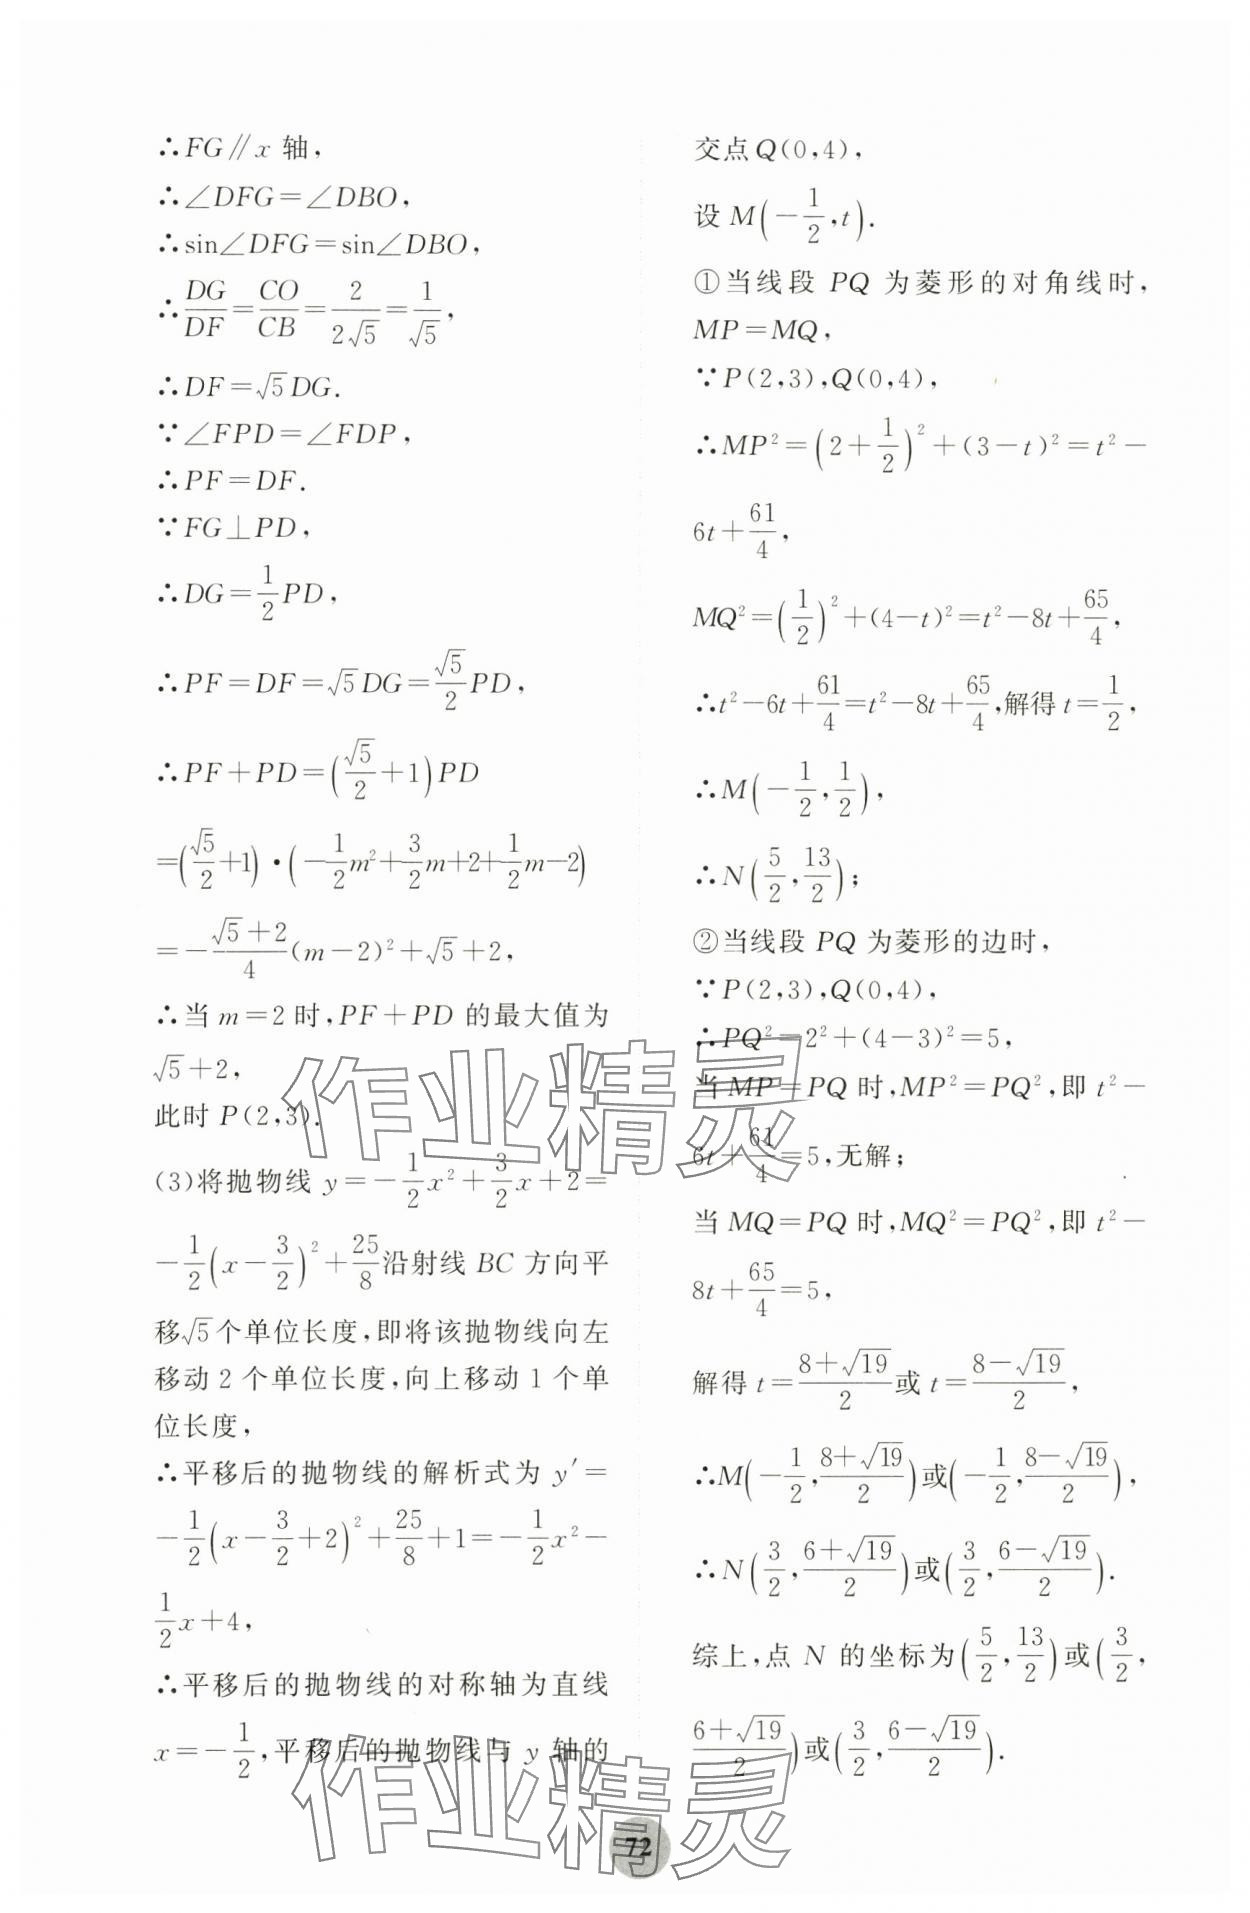 ∴FG∥x 轴,
∴∠DFG=∠DBO,
∴sin∠DFG=sin∠DBO,
∴DG/DF=CO/CB=2/(2√5)=1/√5,
∴DF=√5DG.
∵∠FPD=∠FDP,
∴PF=DF.
∵FG⊥PD,
∴DG=1/2PD,
∴PF=DF=√5DG=√5/2PD,
∴PF+PD=(√5/2+1)PD
=(√5/2+1)•(-1/2m²+3/2m+2+1/2m-2)
=-(√5+2)/4(m-2)²+√5+2,
∴当 m=2 时,PF+PD 的最大值为
√5+2,
此时 P(2,3).
(3)将抛物线 y=-1/2x²+3/2x+2=
-1/2(x-3/2)²+25/8沿射线 BC 方向平
移√5个单位长度,即将该抛物线向左
移动 2 个单位长度,向上移动 1 个单
位长度,
∴平移后的抛物线的解析式为 y′=
-1/2(x-3/2+2)²+25/8+1=-1/2x²-
1/2x+4,
∴平移后的抛物线的对称轴为直线
x=-1/2,平移后的抛物线与 y 轴的
交点Q(0,4),
设 M(-1/2,t).
①当线段 PQ 为菱形的对角线时,
MP=MQ,
∵P(2,3),Q(0,4),
∴MP²=(2+1/2)²+(3-t)²=t²-
6t+61/4,
MQ²=(1/2)²+(4-t)²=t²-8t+65/4,
∴t²-6t+61/4=t²-8t+65/4,解得 t=1/2,
∴M(-1/2,1/2),
∴N(5/2,13/2);
②当线段 PQ 为菱形的边时,
∵P(2,3),Q(0,4),
∴PQ²=2²+(4-3)²=5,
当 MP=PQ 时,MP²=PQ²,即 t²-
6t+61/4=5,无解;
当 MQ=PQ 时,MQ²=PQ²,即 t²-
8t+65/4=5,
解得 t=(8+√19)/2或 t=(8-√19)/2,
∴M(-1/2,(8+√19)/2)或(-1/2,(8-√19)/2),
∴N(3/2,(6+√19)/2)或(3/2,(6-√19)/2).
综上,点 N 的坐标为(5/2,13/2)或(3/2,
(6+√19)/2)或(3/2,(6-√19)/2).
作业精灵
作业精灵
72